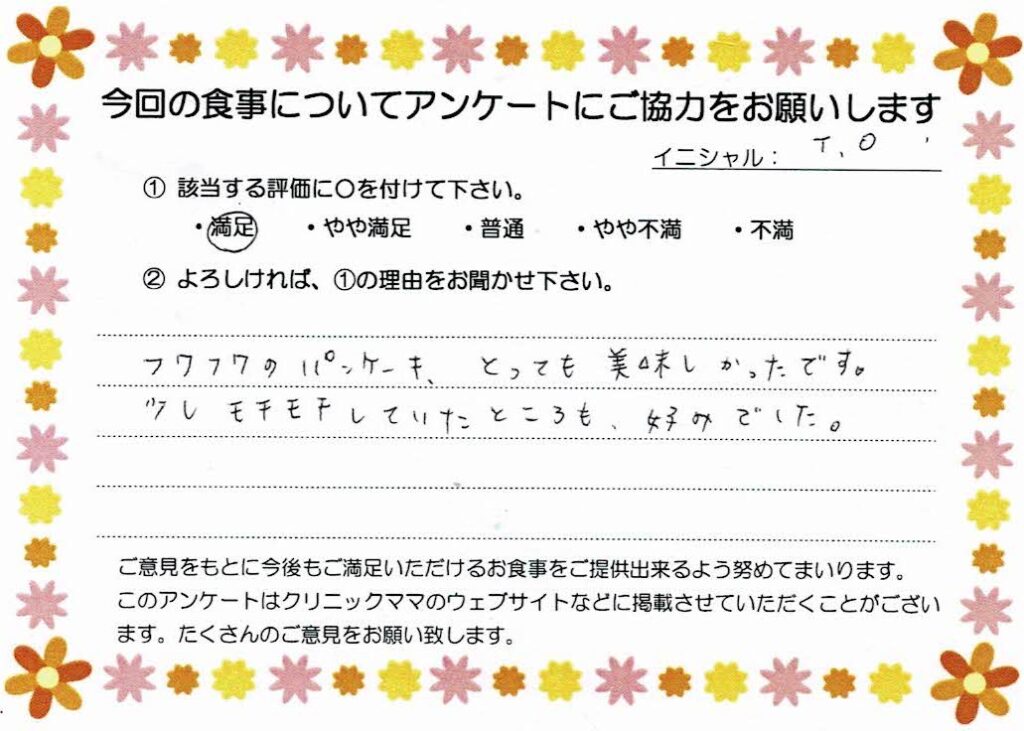 今回の食事についてアンケートにご協力をお願いします
イニシャル： T、O
① 該当する評価に〇を付けて下さい。
・満足 ・やや満足 ・普通 ・やや不満 ・不満
② よろしければ、①の理由をお聞かせ下さい。
フワフワのパンケーキ、とっても美味しかったです。
少しモチモチしていたところも、好みでした。
ご意見をもとに今後もご満足いただけるお食事をご提供出来るよう努めてまいります。
このアンケートはクリニックママのウェブサイトなどに掲載させていただくことがござい
ます。たくさんのご意見をお願い致します。